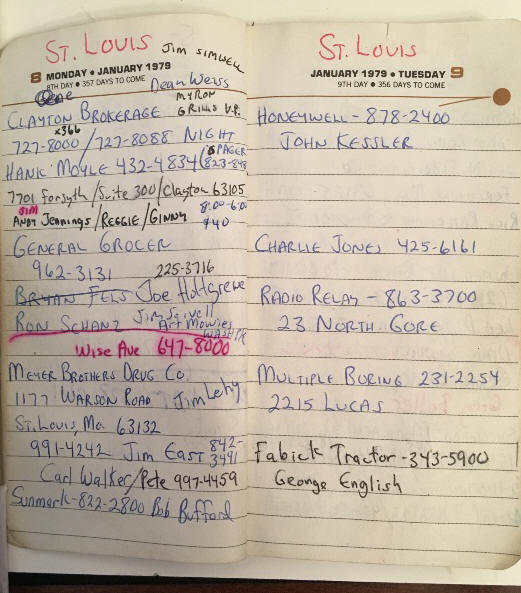 ST. LOUIS Jim SIMWELL
8 MONDAY • JANUARY 1979
8TH DAY • 357 DAYS TO COME
Gene Dean Weiss
MYRON
CLAYTON BROKERAGE GRILLS V.P.
x366
727-8000/727-8088 NIGHT
PAGER
HANK MOYLE 432-4834/823-848
7701 Forsyth/Suite 300/Clayton 63105
JIM 8:00-6:00
ANDY JENNINGS/REGGIE/GINNY $40
GENERAL GROCER
962-3131 225-3716
BRYAN FELS Joe Holtgrewe
RON SCHANZ Jim
Art
Wise Ave 647-8000
MEYER BROTHERS DRUG CO
1177 WARSON ROAD Jim Lehy
ST. LOUIS, MO. 63132
991-4242 Jim EAST 842-3491
Carl Walker/Pete 997-4459
Sunmark-822-2800 Bob Bufford
ST. LOUIS
JANUARY 1979 • TUESDAY 9
9TH DAY • 356 DAYS TO COME
HONEYWELL - 878-2400
JOHN KESSLER
CHARLIE JONES 425-6161
RADIO RELAY - 863-3700
23 NORTH GORE
MULTIPLE BORING 231-2254
2215 LUCAS
Fabick Tractor - 343-5900
George English